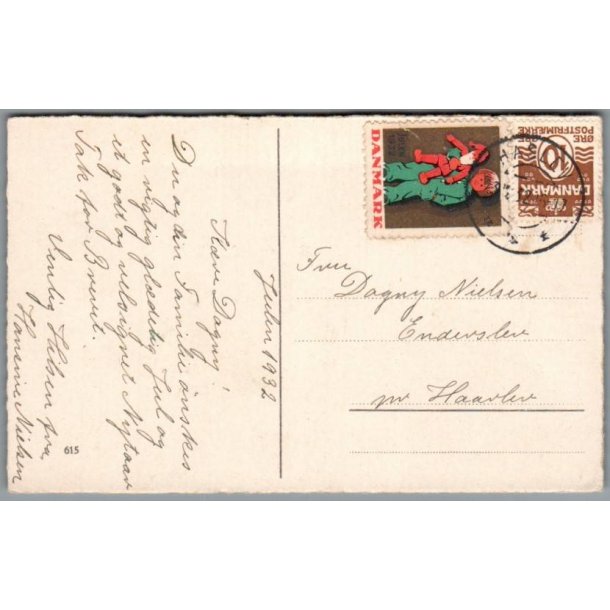 Julen 1932
Kære Dagny!
Du og din Familie ønskes
en rigtig glædelig Jul og
et godt og velsignet Nytaar
Tak for Brevet.
Venlig Hilsen fra
Hansine Nielsen
615
DANMARK
10
ØRE
POSTFRIMÆRKE
DANMARK
Fru
Dagny Nielsen
Enderslev
pr Haarlev